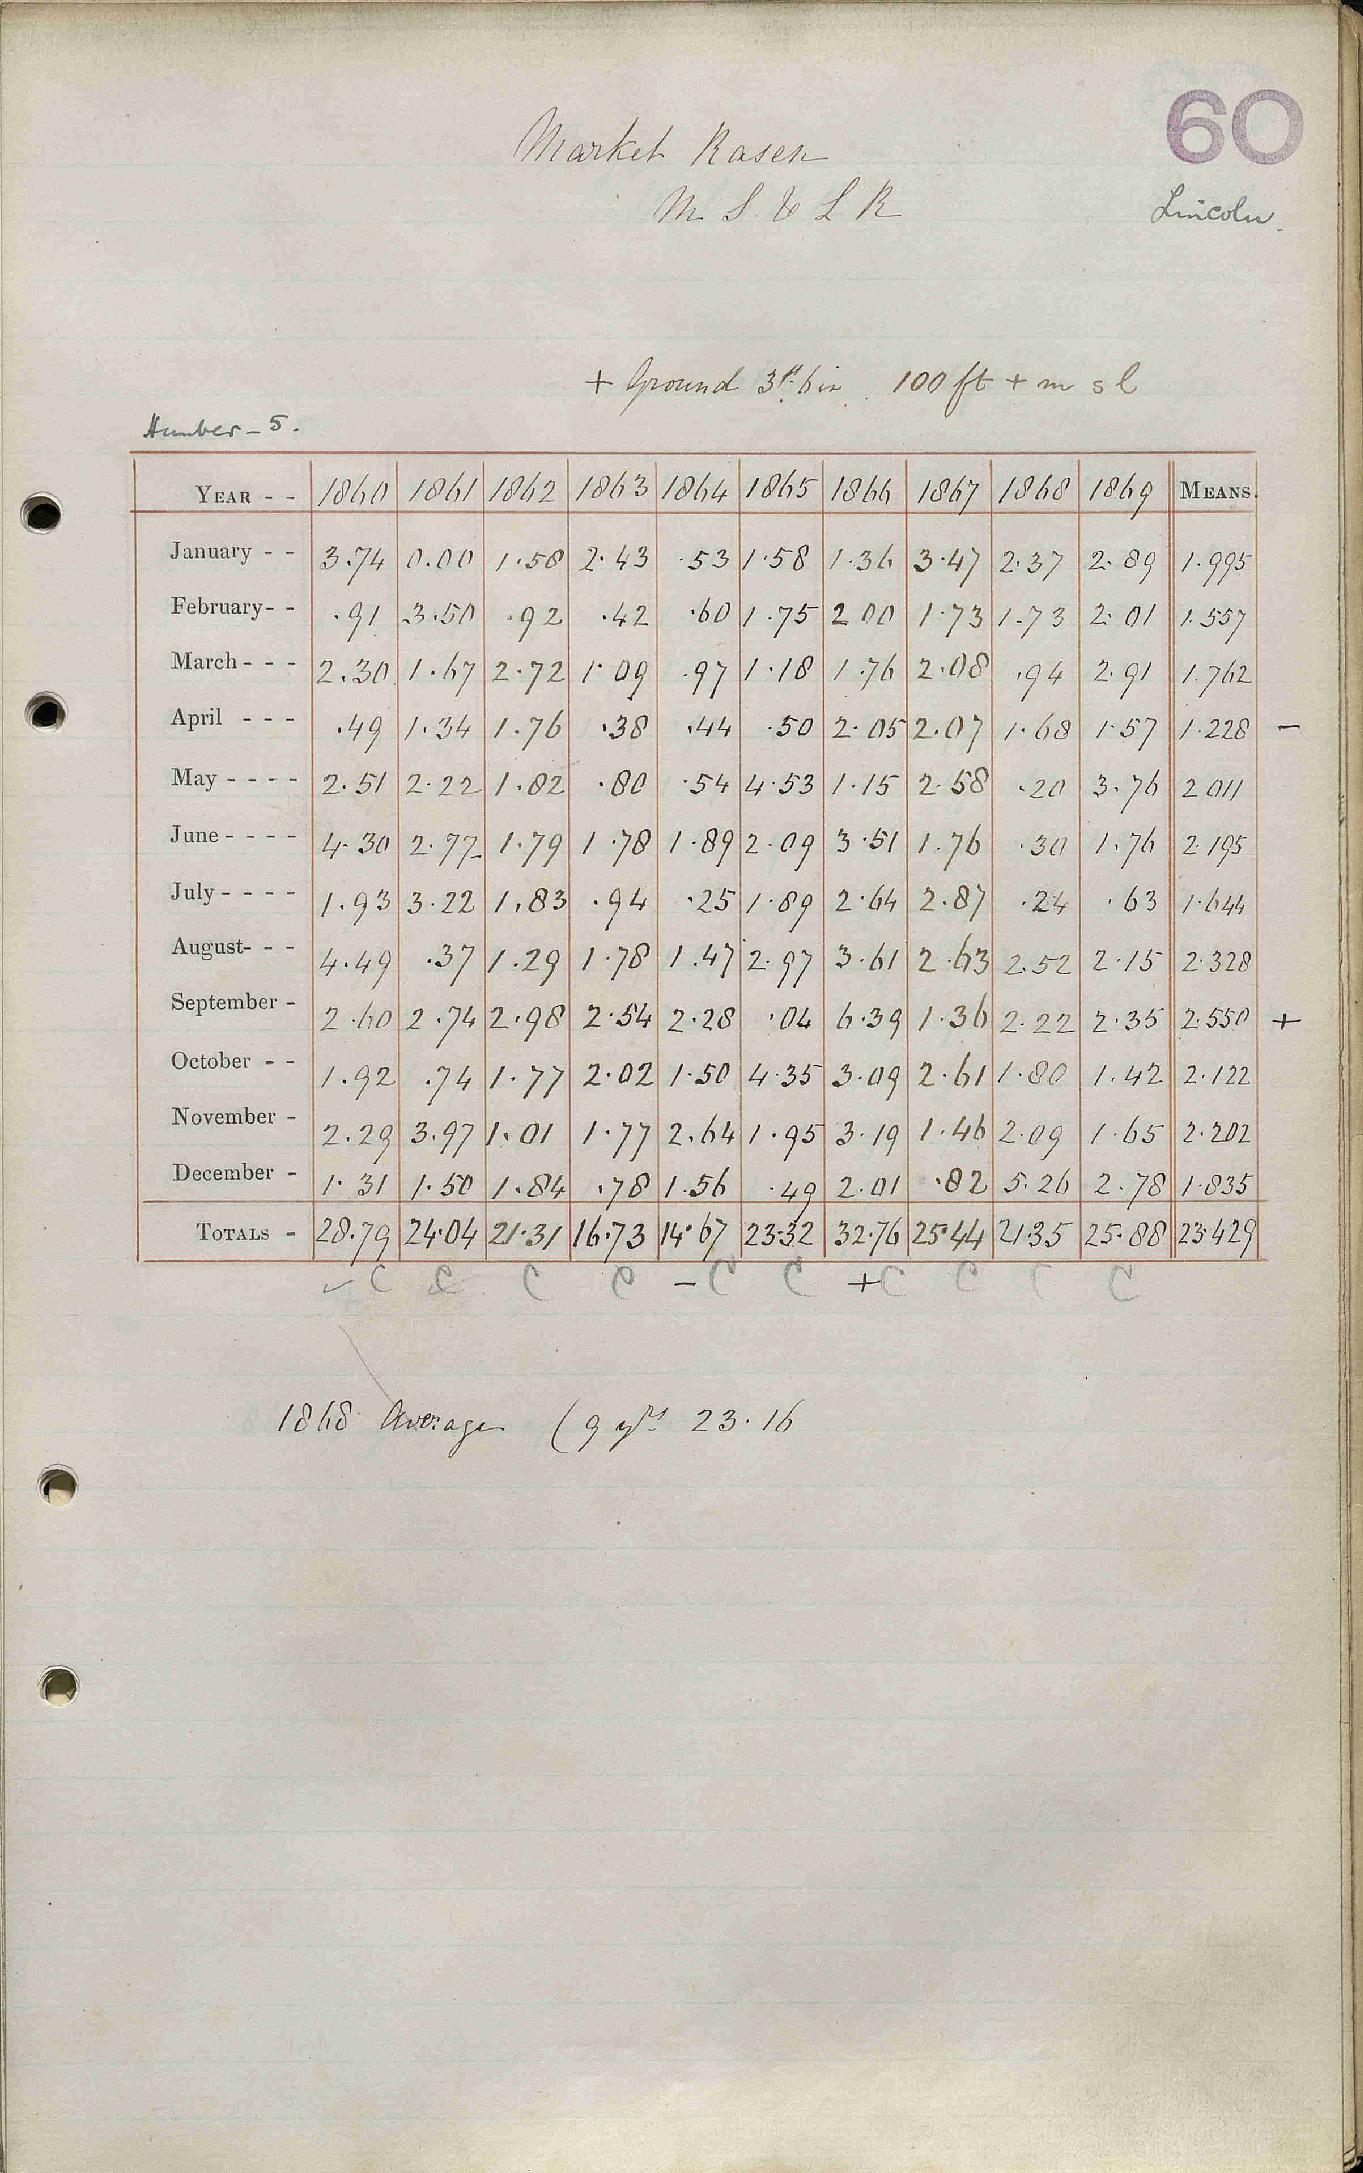 60
Market Rasen
M S. & L R
Lincoln.
+ Ground 3ft 6in 100 ft + m s l
Humber - 5.
YEAR - - 1860 1861 1862 1863 1864 1865 1866 1867 1868 1869 MEANS.
January - - 3.74 0.00 1.58 2.43 .53 1.58 1.36 3.47 2.37 2.89 1.995
February- - .91 3.50 .92 .42 .60 1.75 2 00 1.73 1.73 2.01 1.557
March - - - 2.30 1.67 2.72 1.09 .97 1.18 1.76 2.08 .94 2.91 1.762
April - - - .49 1.34 1.76 .38 .44 .50 2.05 2.07 1.68 1.57 1.228 -
May - - - - 2.51 2.22 1.82 .80 .54 4.53 1.15 2.58 .20 3.76 2 011
June - - - - 4.30 2.77 1.79 1.78 1.89 2.09 3.51 1.76 .30 1.76 2.195
July - - - - 1.93 3.22 1.83 .94 .25 1.89 2.64 2.87 .24 .63 1.644
August- - - 4.49 .37 1.29 1.78 1.47 2.97 3.61 2.63 2.52 2.15 2.328
September - 2.60 2.74 2.98 2.54 2.28 .04 6.39 1.36 2.22 2.35 2.550 +
October - - 1.92 .74 1.77 2.02 1.50 4.35 3.09 2.61 1.80 1.42 2.122
November - 2.29 3.97 1.01 1.77 2.64 1.95 3.19 1.46 2.09 1.65 2.202
December - 1.31 1.50 1.84 .78 1.56 .49 2.01 .82 5.26 2.78 1.835
TOTALS - 28.79 24.04 21.31 16.73 14.67 23.32 32.76 25.44 21.35 25.88 23.429
- +
1868 Average (9 yrs 23.16